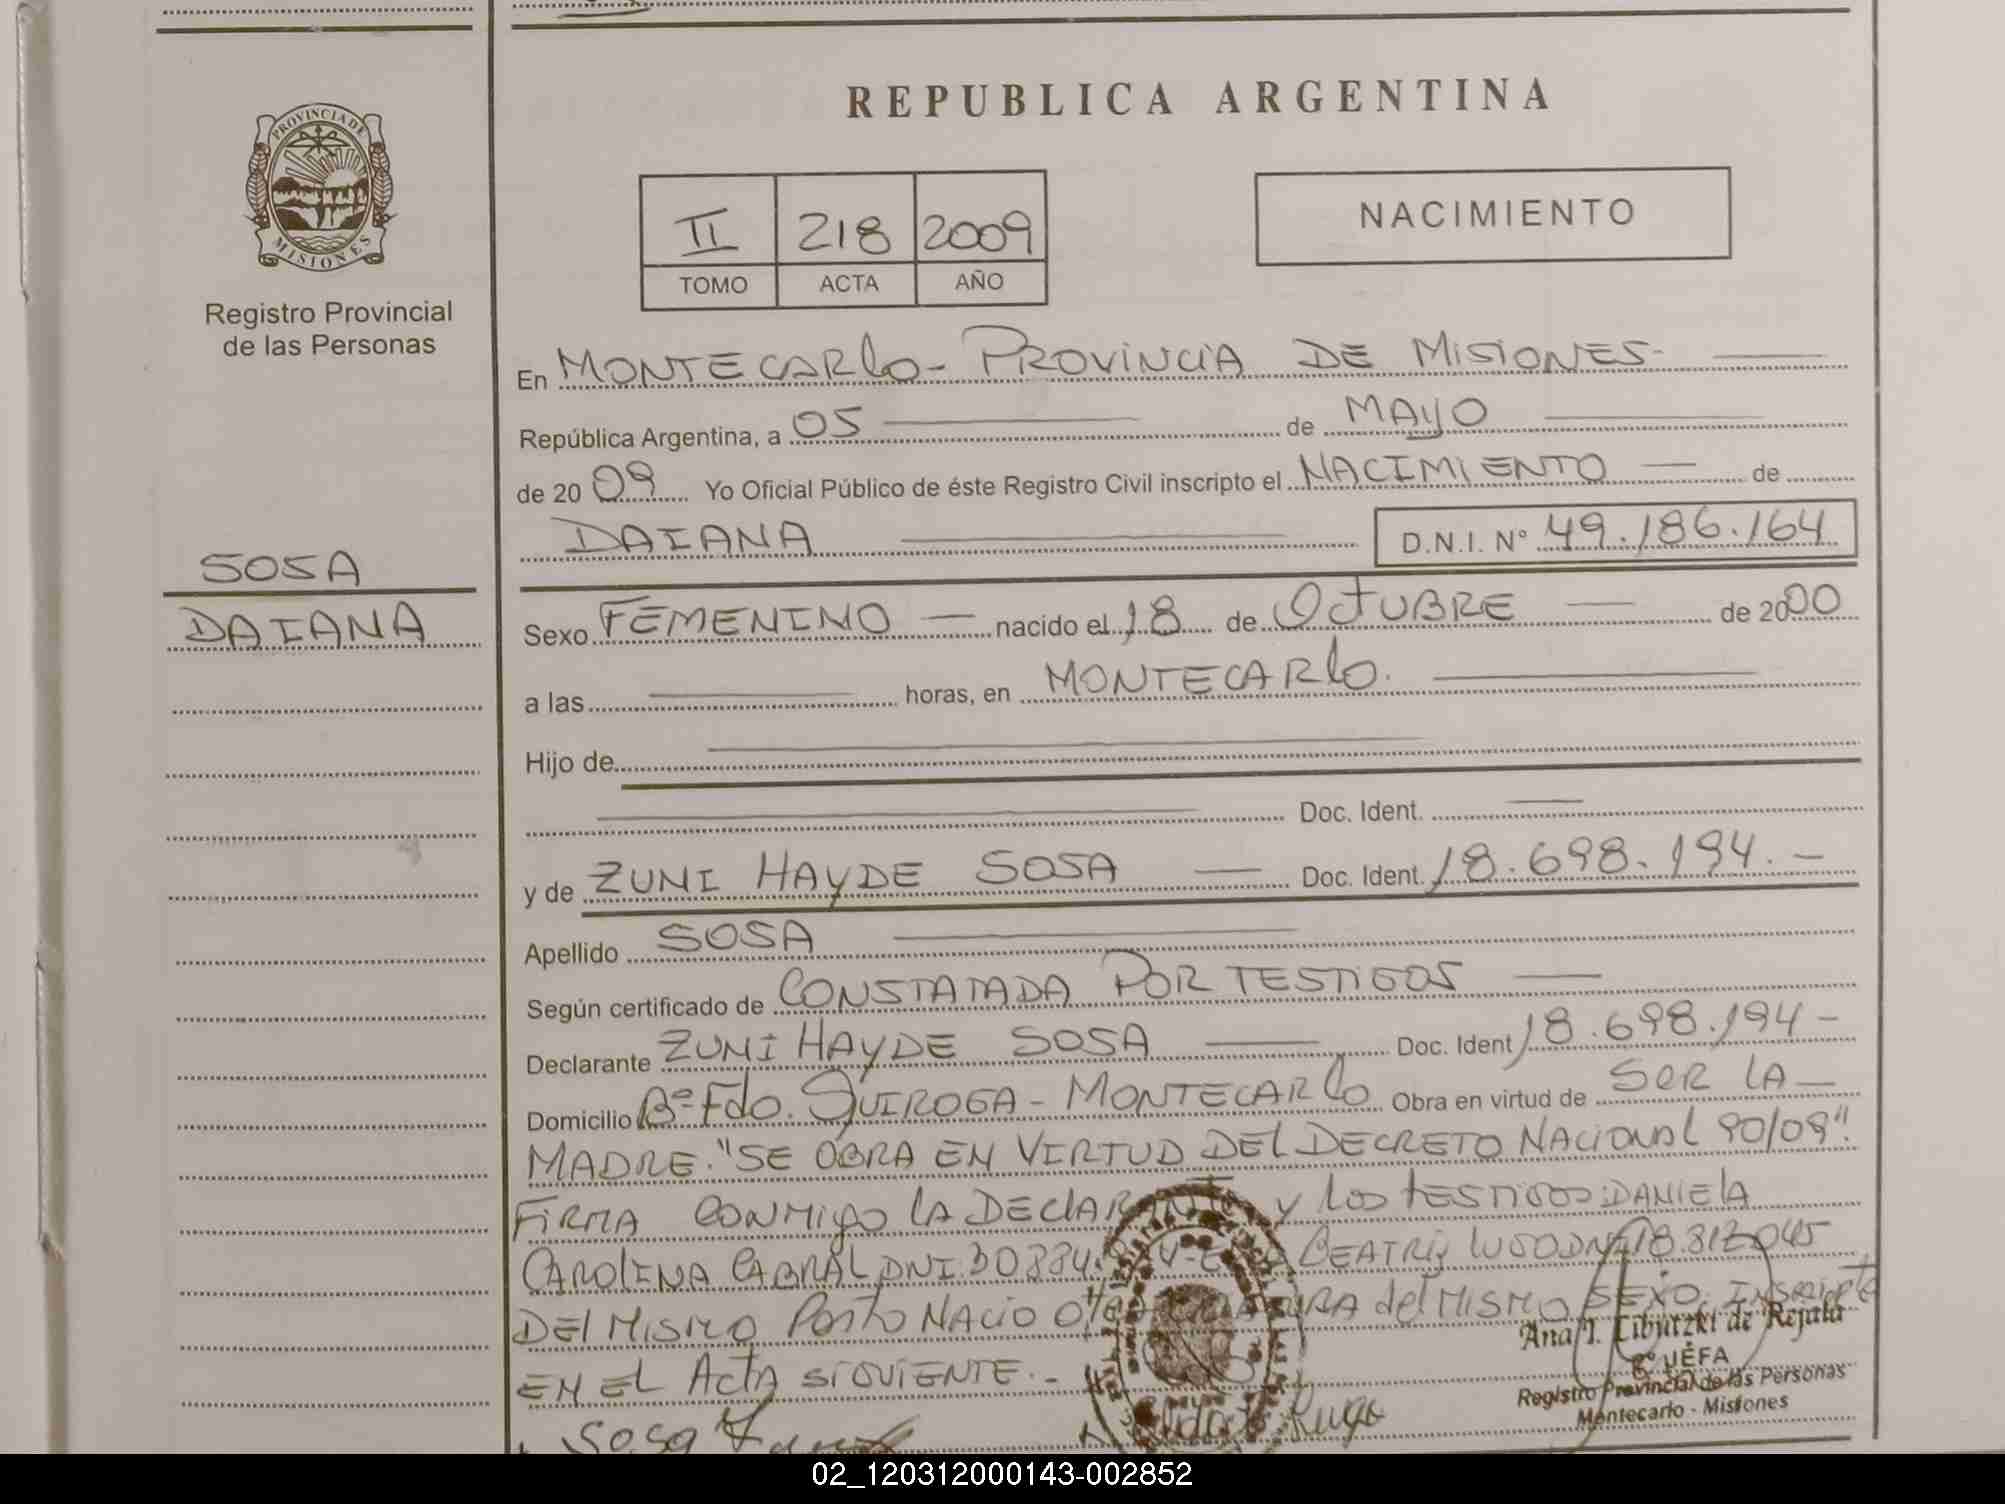 PROVINCIA DE
MISIONES
Registro Provincial
de las Personas
SOSA
DAIANA
REPUBLICA ARGENTINA
II 218 2009
TOMO ACTA AÑO
NACIMIENTO
En MONTECARLO - PROVINCIA DE MISIONES -
República Argentina, a 05 de MAYO
de 20 09 Yo Oficial Público de éste Registro Civil inscripto el NACIMIENTO de
DAIANA D.N.I. N° 49.186.164
Sexo FEMENINO nacido el 18 de OCTUBRE de 2000
a las horas, en MONTECARLO.
Hijo de
Doc. Ident.
y de ZUNI HAYDE SOSA Doc. Ident. 18.698.194. -
Apellido SOSA
Según certificado de CONSTATADA POR TESTIGOS
Declarante ZUNI HAYDE SOSA Doc. Ident 18.698.194 -
Domicilio Bº Fdo. QUIROGA - MONTECARLO Obra en virtud de SER LA
MADRE. "SE OBRA EN VIRTUD DEL DECRETO NACIONAL 90/09".
FIRMA CONMIGO LA DECLARANTE y LOS TESTIGOS: DANIELA
CAROLINA CABRAL DNI. 30.884. BEATRIZ LUGO DNI 18.813.045
DEL MISMO PARTO NACIO CRIATURA del MISMO SEXO, INSCRIPTA
EN EL ACTA SIGUIENTE. -
Ana I. Cibutzki de Rejala
2º JEFA
Registro Provincial de las Personas
Montecarlo - Misiones
Sosa
Lugo
02_120312000143-002852